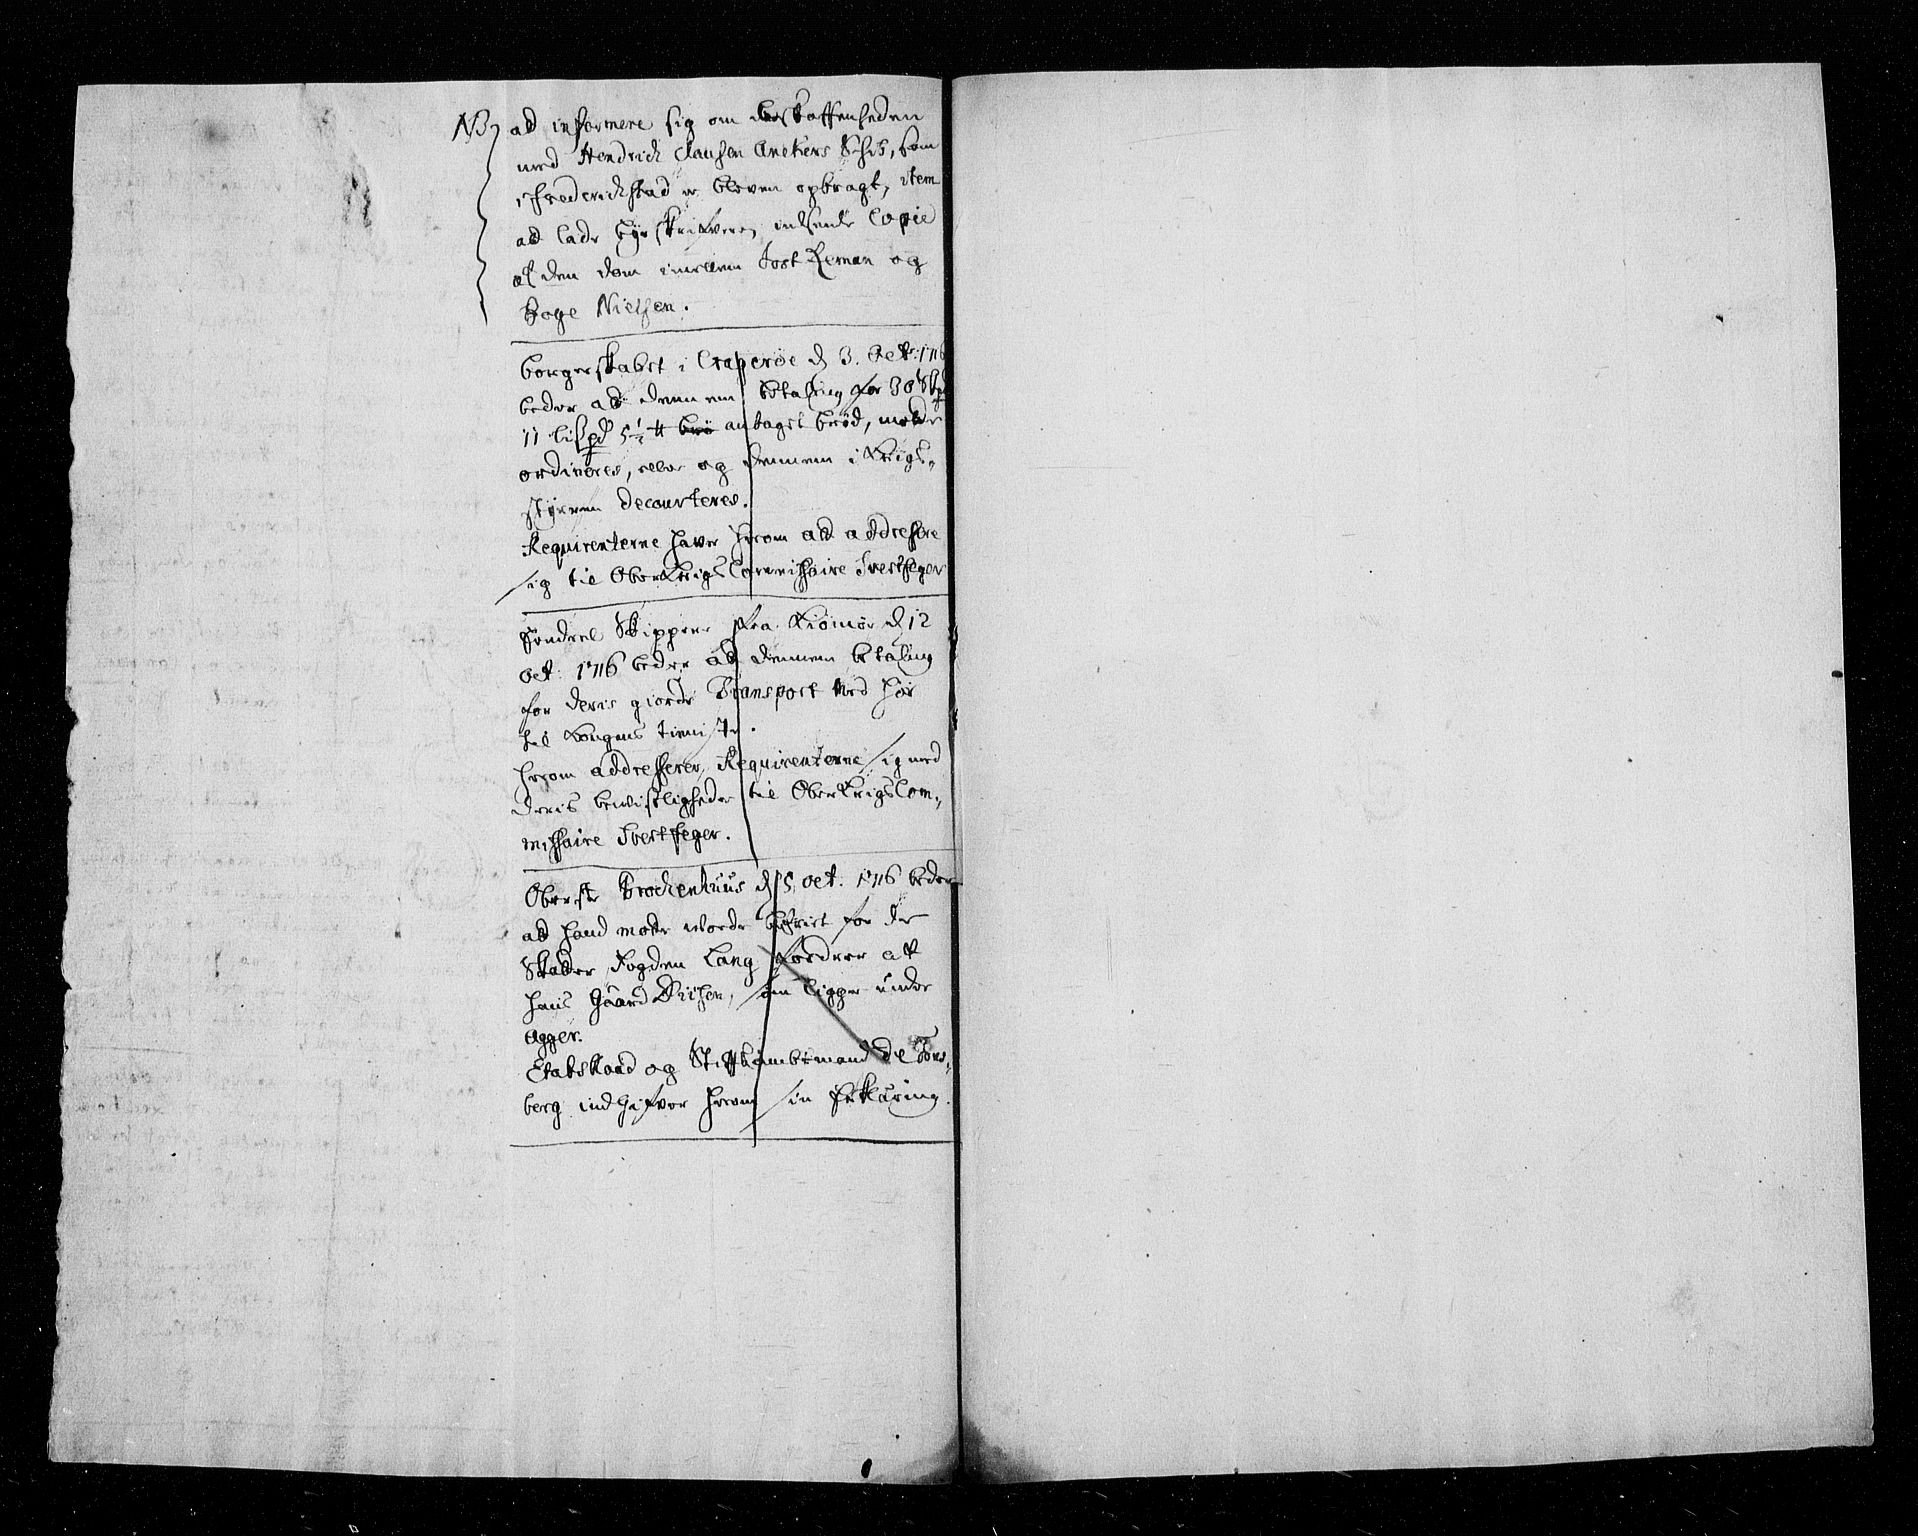 NB, ad informere sig om beskaffenheden
med Hendrich Clausen Ankers Schib, som
i Frederichstad er bleven opbragt, item
ad lade byeskrifveren indsende Copie
af den dom imellem Jost Leman og
Boye Nielsen.
Borgerskabet i Crageröe d 3. Oct: 1716
beder ad dennem betaling for 30 Skpd
11 Lispd 5½ ℔ antaget bröd, motte
ordineres, eller og dennem i Krigs-
styren decourteres.
Requirenterne haver herom ad addressere
sig til OberKrigsCommissaire Svertfeger
Endeel Skippere fra Kiömöe d 12
oct: 1716 beder ad dennem betaling
for deris giorde Transport med höe
til Kongens tieniste.
herom addresserer Requirenterne sig med
deris bewisligheder til OberKrigsCom-
missaire Svertfeger.
Oberste Brochenhuus d 15 oct: 1716 beder
ad hand motte worde befriet for de
Skatter Fogden Lang fordrer aff
hans Gaard, som ligger under
Agger.
EtatsRaad og Stiftambtmand de Tons-
berg indgifver herom sin Erklæring.